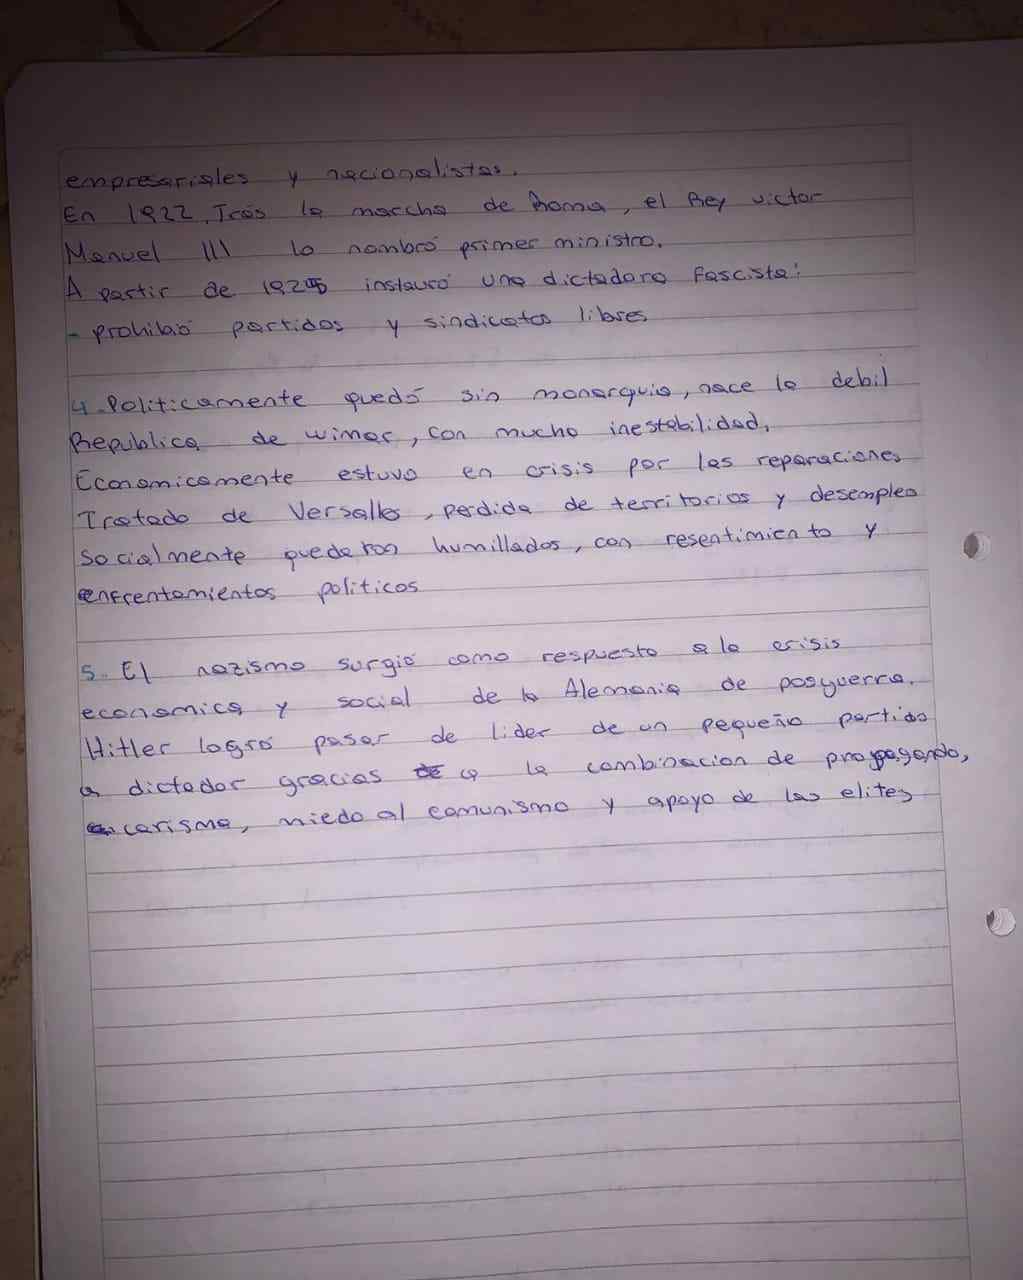 empresariales y nacionalistas.
En 1922, Trás la marcha de Roma, el Rey victor
Manuel III lo nombró primer ministro.
A partir de 1925 instauró una dictadora Fascista:
- prohibió partidos y sindicatos libres
4. Politicamente quedó sin monarquia, nace la debil
Republica de wimar, con mucha inestabilidad,
Economicamente estuvo en crisis por las reparaciones
Tratado de Versalles, perdida de territorios y desempleo
Socialmente quedaron humillados, con resentimiento y
enfrentamientos politicos
5. El nazismo surgió como respuesta a la crisis
economica y social de la Alemania de posguerra.
Hitler logró pasar de lider de un pequeño partido
a dictador gracias a la combinacion de propaganda,
carisma, miedo al comunismo y apoyo de las elites